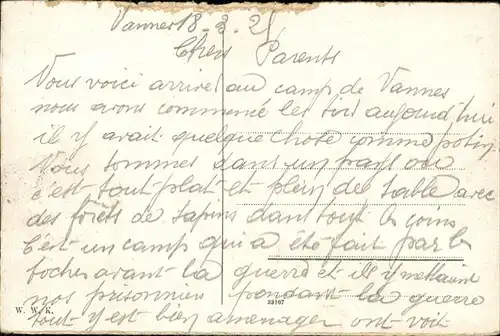 Vannes 18-3-25
Chers Parents
Vous voici arrivé au camp de Vannes
nous avons commencé les tirs aujourd'hui
il y avait quelque chose comme potin
Vous sommes dans un pays ou
c'est tout plat et plein de sable avec
des forêts de sapins dans tout les coins
C'est un camp qui a été fait par les
boches avant la guerre et ils y mettaient
nos prisonniers pendant la guerre
tout y est bien amenager ont voit
W. W. K.
33167